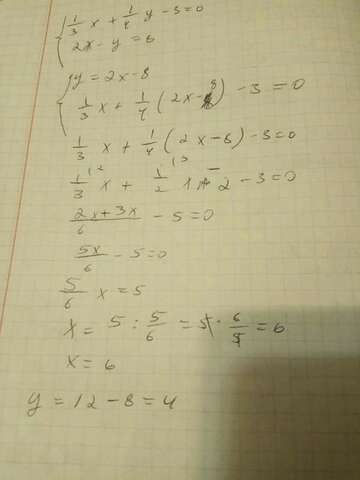 1/3 x + 1/4 y - 3 = 0
2x - y = 8
y = 2x - 8
1/3 x + 1/4 (2x - 8) - 3 = 0
1/3 x + 1/4 (2x - 8) - 3 = 0
1/3 x + 1/2 x - 2 - 3 = 0
2x + 3x / 6 - 5 = 0
5x/6 - 5 = 0
5/6 x = 5
x = 5 : 5/6 = 5 · 6/5 = 6
x = 6
y = 12 - 8 = 4